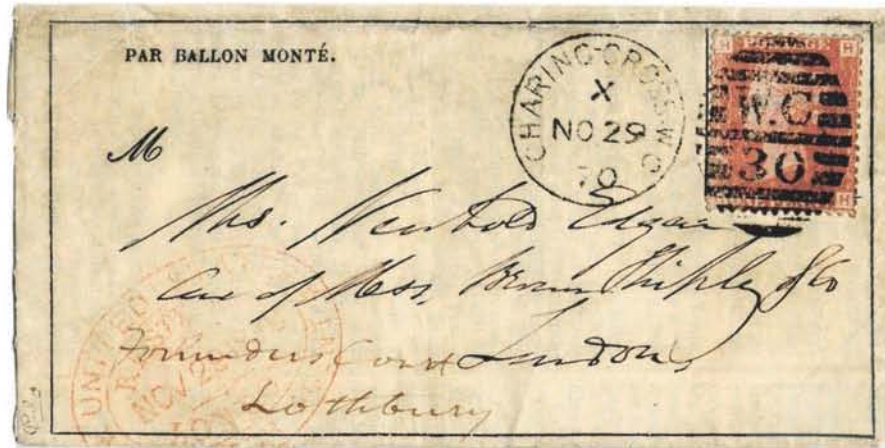 PAR BALLON MONTÉ.
CHARING-CROSS W.C
X
NO 29
70
W.C
30
H H
H
M
Mrs. Newbold Edgar
Care of Mess. Brown Shipley & Co
Founders Court London
Lothbury
UNITED
NOV 2